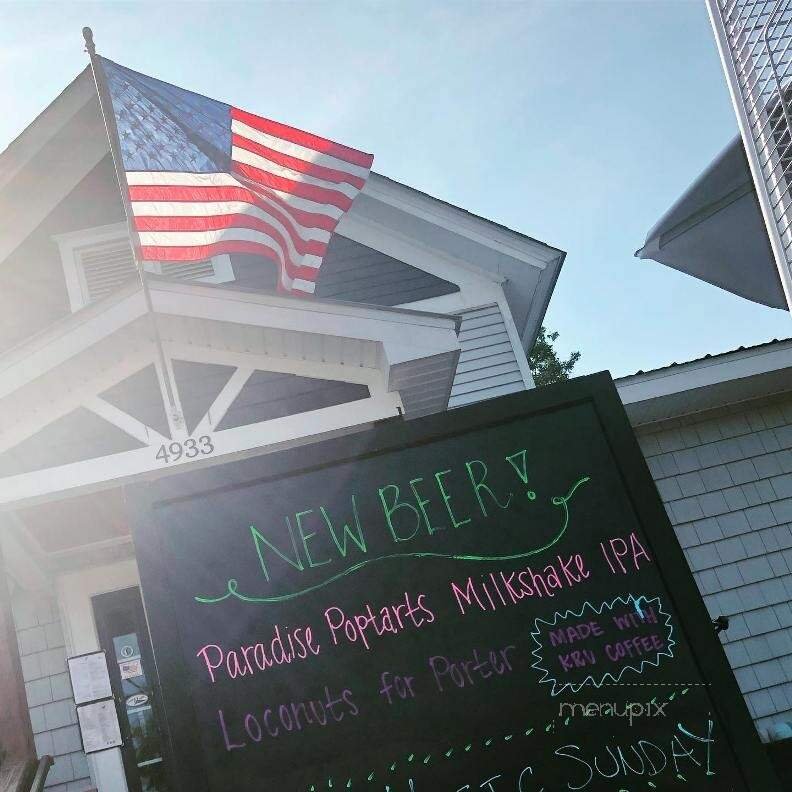 4933
NEW BEER!
Paradise Poptarts Milkshake IPA
Loconuts for Porter
MADE WITH
KRU COFFEE
menupix
SUNDAY